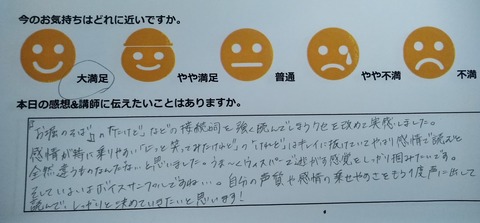 今のお気持ちはどれに近いですか。
大満足 やや満足 普通 やや不満 不満
本日の感想&講師に伝えたいことはありますか。
「お堀のそば」の「だけど」などの接続詞を強く読んでしまうクセを改めて実感しました。
感情が特に乗りやすい「じっと笑ってみたけど」の「けれど」はキレイに抜けていてやはり感情で読むと
全然違うものなんだなぁと思いました。うぅ〜ウィスパーで逃がす感覚をしっかり掴みたいです。
そしていよいよボイスサンプルですね…。自分の声質や感情の乗せやすさをもう1度声に出して
読んで、しっかりと決めていきたいと思います!